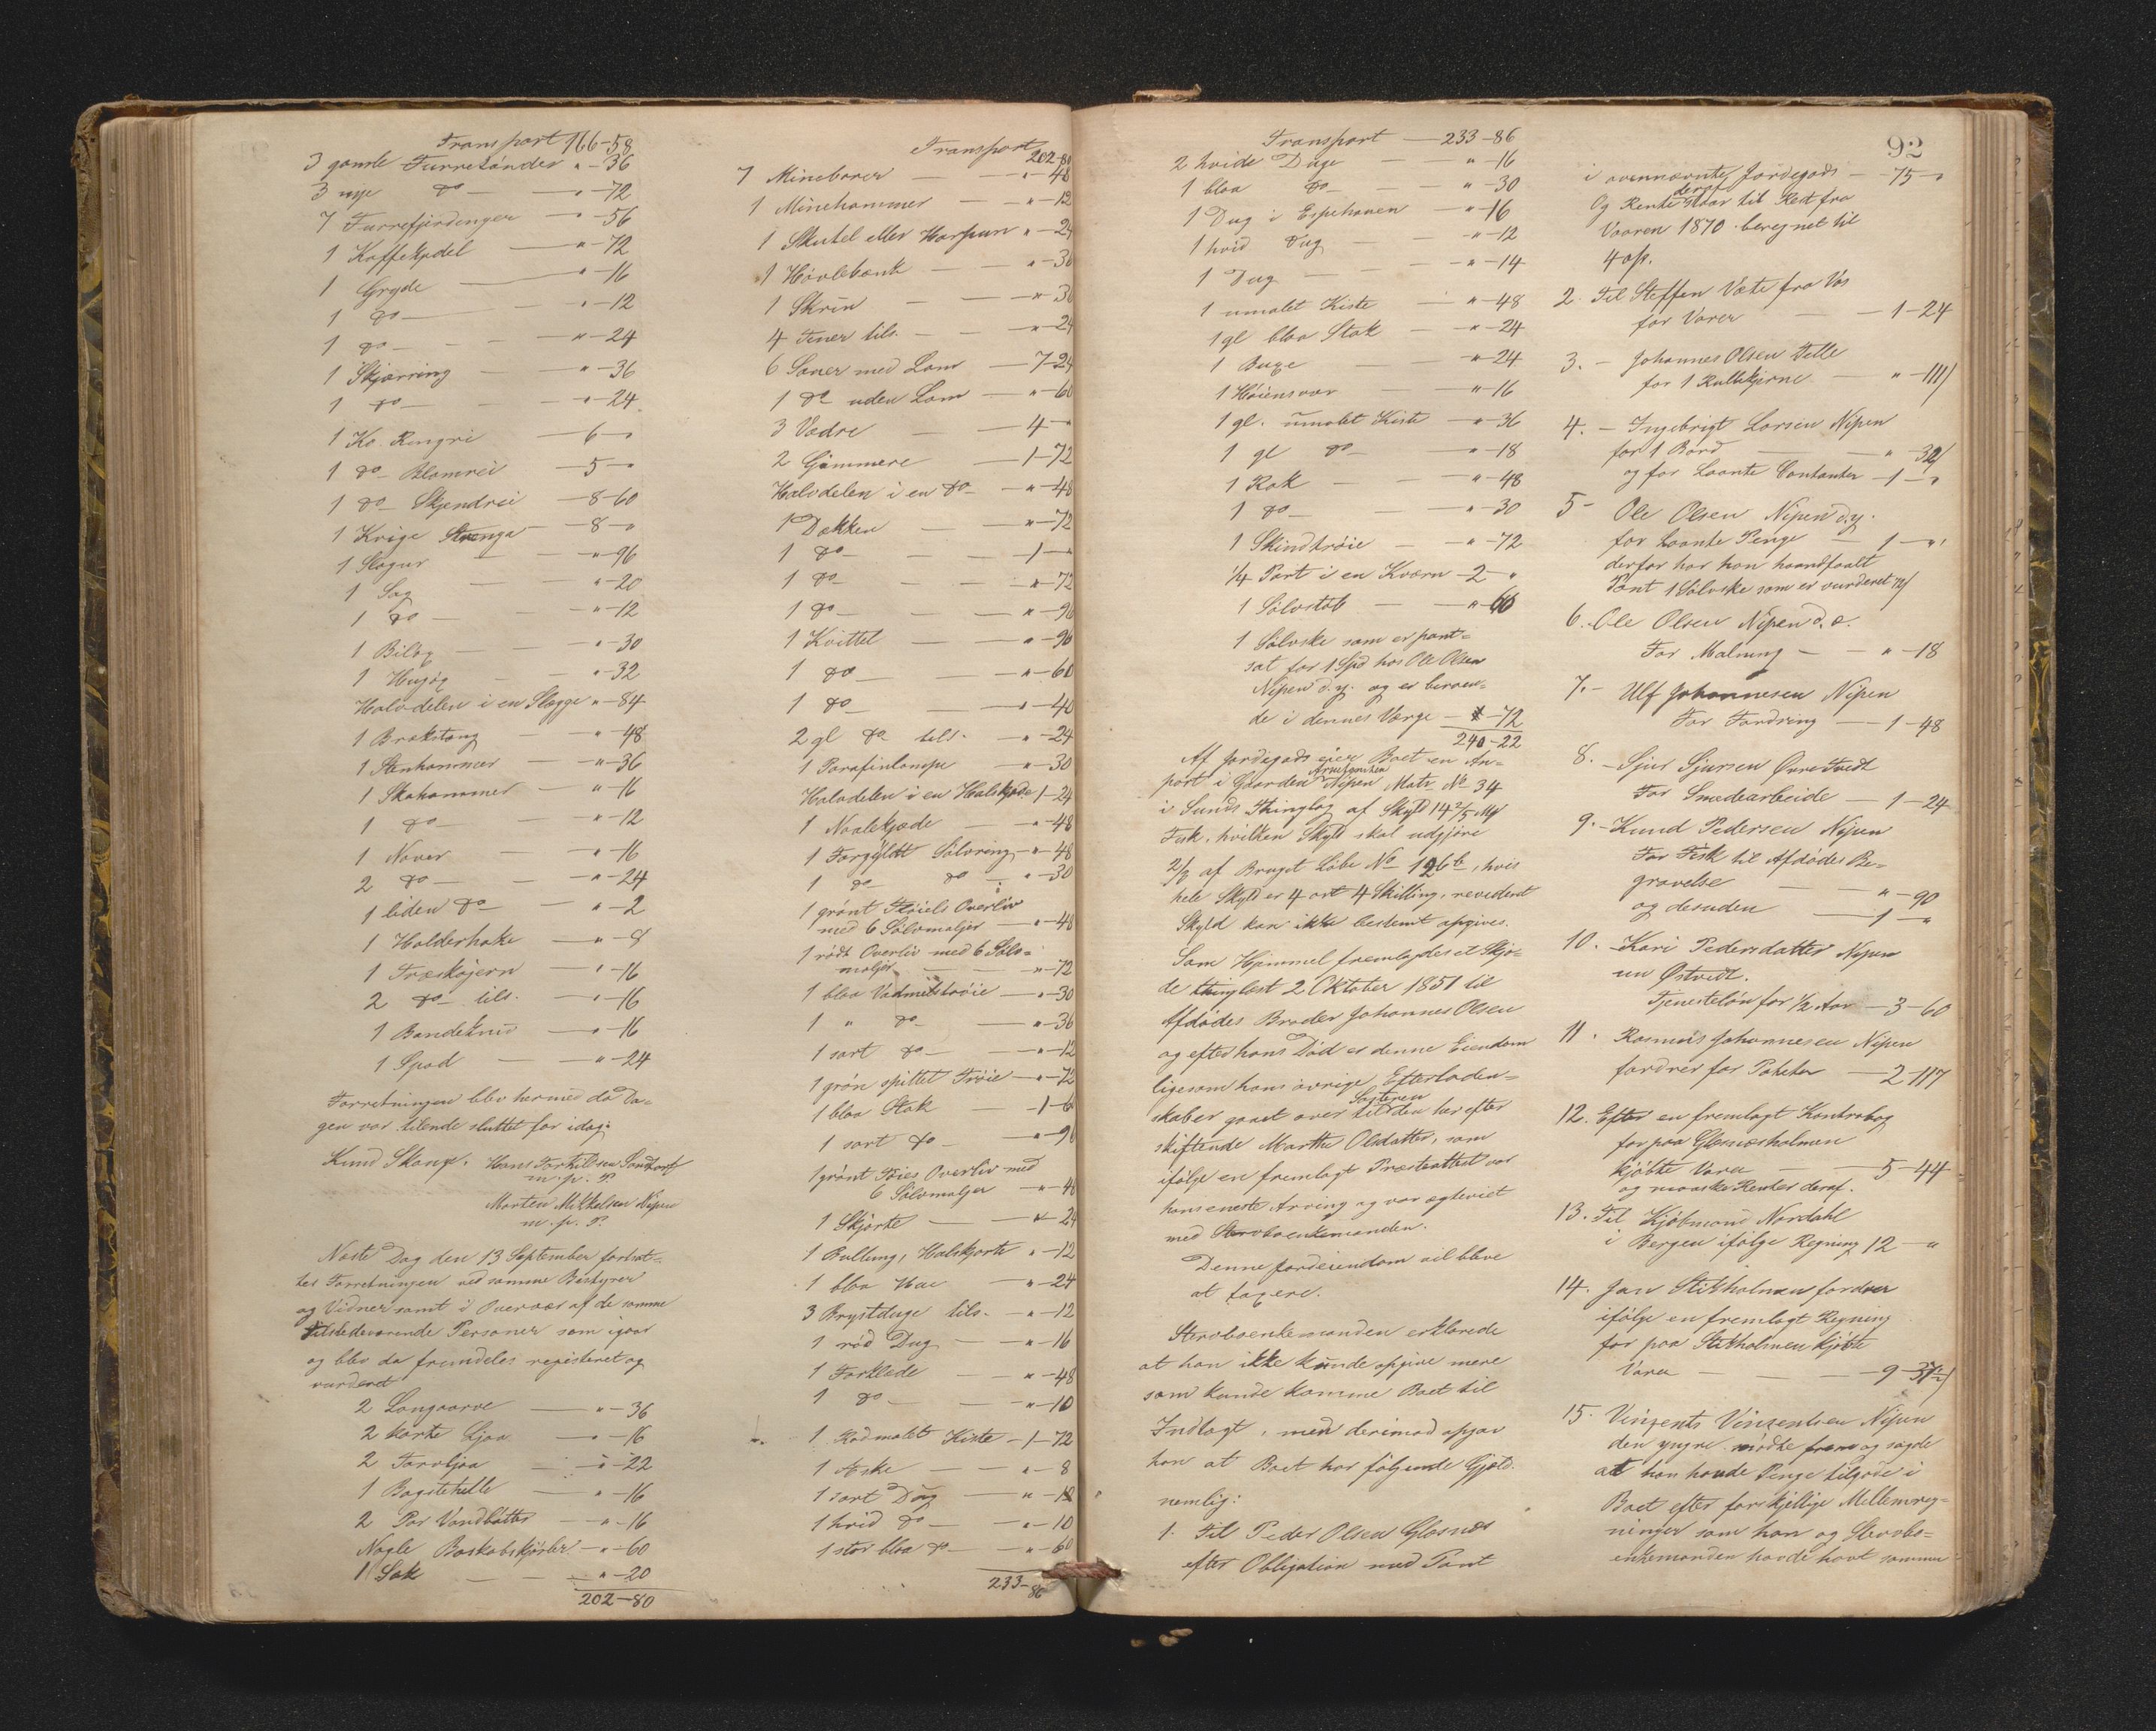 Transport 166-58
3 gamle Turretønder " - 36
3 nye do - " - 72
7 Turrefjerdinger " - 56
1 Kaffekjedel - " - 72
1 Gryde - " - 16
1 do - " - 12
1 do - " - 24
1 Skjærring - " - 36
1 do - " - 24
1 Ko Ringri - 6 - "
1 do Blomrei - 5 - "
1 do Skjendrei - 8-60
1 Krige - 8 - "
1 Slagur - " - 96
1 Sag - " - 20
1 do - " - 12
1 Biløg - " - 30
1 Hugøg - " - 32
Halvdelen i en Slægge " - 84
1 Brækstang - " - 48
1 Stenhammer - " - 36
1 Skohammer - " - 16
1 do - " - 12
1 Naver - " - 16
2 do - " - 24
1 liden do - " - 2
1 Holderhake - " - 8
1 Træskojern - " - 16
2 do tils. - " - 16
1 Bandekniv - " - 16
1 Spad - " - 24
Forretningen blev hermed da Da-
gen var tilende sluttet for idag.
Knud Skauge. Hans Torkilsen
m. p. P
Morten Mikkelsen Nipen
m. p. P.
Næste Dag den 13 September fortsat-
tes Forretningen ved samme Bestyrer
og Vidner samt i Overvær af de samme
tilstedeværende Personer som igaar
og blev da fremdeles registeret og
vurderet
2 Langaarve - " - 36
2 korte Ljaa - " - 16
2 Torvljaa - " - 22
1 Bagstehelle - " - 16
2 Par Vandbøtter - " - 16
Nogle Boskabskjørler - " - 60
1 Sæk - " - 20
202-80
Transport 202-80
7 Mineborer - " - 48
1 Minehammer - " - 12
1 Skutel eller Harpun " - 24
1 Høvlebænk - " - 36
1 Skrin - " - 36
4 Tiner tils. - " - 24
6 Sauer med Lam - 7-24
1 do uden Lam - " - 60
3 Vædre - 4 - "
2 Gjømmere - 1-72
Halvdelen i en do - " - 48
1 Dækken - " - 72
1 do - 1 - "
1 do - " - 72
1 do - " - 96
1 Kvittel - " - 96
1 do - " - 60
1 do - " - 40
2 gl do tils. - " - 24
1 Parafinlampe - " - 30
Halvdelen i en Halskjæde 1-24
1 Naalekjæde - " - 48
1 Forgyldt Sølvring - " - 48
1 do do - " - 30
1 grønt Fløiels Overliv
med 6 Sølvmaljer - " - 48
1 rødt Overliv med 6 Sølv-
maljer - " - 72
1 blaa Vadmelstrøie - " - 30
1 " do - " - 36
1 sort do - " - 12
1 grøn spittet Trøie - " - 72
1 blaa Stak - 1-6
1 sort do - " - 90
1 grønt Overliv med
6 Sølvmaljer - " - 48
1 Skjorte - " - 24
1 Bullung, Halskjorte " - 12
1 blaa Hue - " - 24
3 Brystduge tils. - " - 12
1 rød Dug - " - 16
1 Forklæde - " - 48
1 do - " - 10
1 Rødmalet Kiste - 1-72
1 Æske - " - 8
1 sort Dug - " - 18
1 hvid do - " - 10
1 stor blaa do - " - 60
233-86
92
Transport - 233-86
2 hvide Duge - " - 16
1 blaa do - " - 30
1 Dug i Espehaven - " - 16
1 hvid Dug - " - 12
1 Dug - " - 14
1 umalet Kiste - " - 48
1 gl blaa Stak - " - 24
1 Buxe - " - 24
1 Høiensvar - " - 16
1 gl. umalet Kiste - " - 36
1 gl do - " - 18
1 Rok - " - 48
1 do - " - 30
1 Skindtrøie - " - 72
1/4 Part i en Kværn - 2 - "
1 Sølvstøb - " - 66
1 Sølvske som er pant-
sat for 1 Spd hos Ole Olsen
Nipen d. y. og er beroen-
de i dennes Værge - " - 72
240-22
Af Jordegods eier Boet en An-
part i Gaarden Nipen Matr No 34
i Sunds Thinglag af Skyld 14 2/5 Mk
Fisk, hvilken Skyld skal udgjøre
2/3 af Bruget Løbe No 126b, hvis
hele Skyld er 4 ort 4 Skilling, revideret
Skyld kan ikke bestemt opgives.
Som Hjemmel fremlagdes et Skjø-
de thinglæst 2 Oktober 1851 til
Afdødes Broder Johannes Olsen
og efter hans Død er denne Eiendom
ligesom hans øvrige Efterladen-
skaber gaaet over til Søsteren den her efter
skiftende Marthe Olsdatter, som
ifølge en fremlagt Præsteattest var
hans eneste Arving og var ægteviet
med Stervboenkemanden.
Denne Jordeiendom vil blive
at taxere.
Stervboenkemanden erklærede
at han ikke kunde opgive mere
som kunde komme Boet til
Indtægt, men derimod opgav
han at Boet har følgende Gjæld.
nemlig:
1. Til Peder Olsen Glesnæs
efter Obligation med Pant
i ovennævnte Jordegods - 75 - "
Og Rente deraf staar til Rest fra
Vaaren 1870 beregnet til
4 op.
2. Til Steffen Væte fra Vos
for Varer - 1-24
3. - Johannes Olsen Telle
for 1 Rullekjerne - " - 111)
4. - Ingebrigt Larsen Nipen
for 1 Bord - " - 32)
og for Laante Contanter - 1 - "
5 - Ole Olsen Nipen d. y.
for Laante Penge - 1 - "
derfor har han haandfaaet
Pant 1 Sølvske som er vurderet 72)
6. - Ole Olsen Nipen d. e.
For Malning - " - 18
7. - Ulf Johannesen Nipen
For Fordring - 1-48
8. - Sjur Sjursen Øvretvedt
For Smedearbeide - 1-24
9. - Knud Pedersen Nipen
For Fisk til Afdødes Be-
gravelse - " - 90
og desuden - 1 - "
10. - Kari Pedersdatter Nipen
nu Østvedt.
Tjenesteløn for 1/2 Aar - 3-60
11. Rasmus Johannesen Nipen
fordrer for Poteter - 2-117
12. Efter en fremlagt Kontrabog
for paa Glesnæsholmen
kjøbte Varer - 5-44
og maaske Renter deraf.
13. Til Kjøbmand Nordahl
i Bergen ifølge Regning 12 - "
14. Jan Stikholmen fordrer
ifølge en fremlagt Regning
for paa Stikholmen kjøbte
Varer - 9-37½)
15. Vinzents Vinzentsen Nipen
den yngre mødte frem og sagde
at han havde Penge tilgode i
Boet efter forskjellige Mellemreg-
ninger som han og Stervbo-
enkemanden havde havt sammen